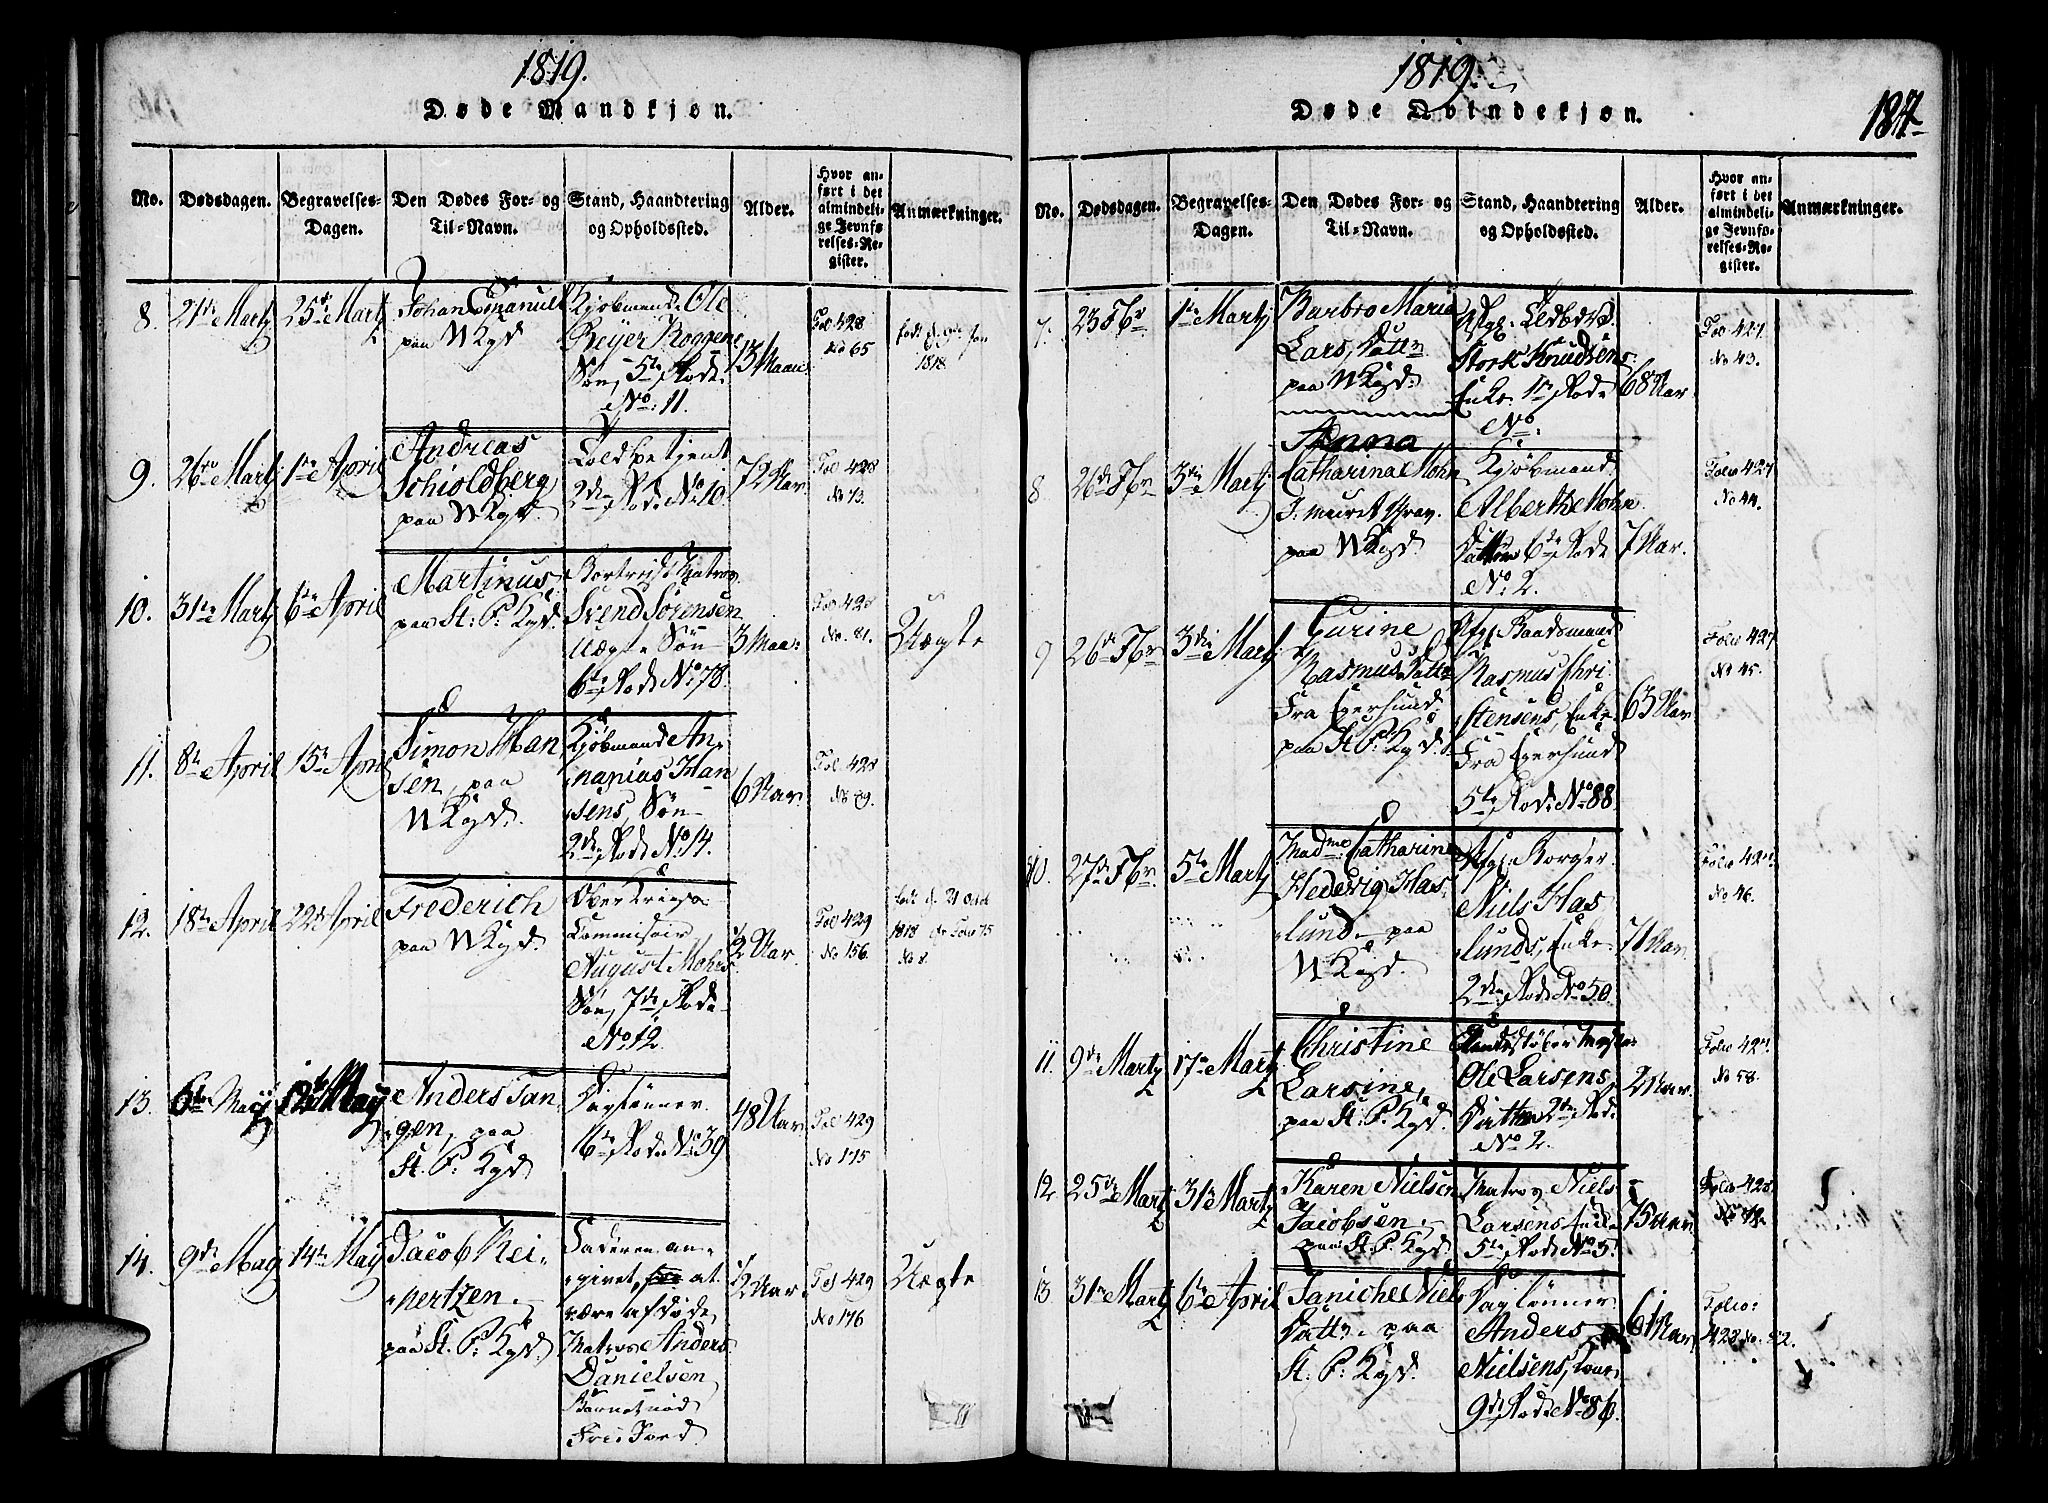 1819.
Døde Mandkjøn.
No.
Dødsdagen.
Begravelses-
Dagen.
Den Dødes For- og
Til-Navn.
Stand, Haandtering
og Opholdssted.
Alder.
Hvor an-
ført i det
almindeli-
ge Jevnfø-
relses-Re-
gister.
Anmærkninger.
8.
21de Martj
25de Martj
Johan Emanuel
paa N Kgd
Kjøbmand Ole
Beyer Roggens
Søn, 5te Rode
No: 11.
13 Maan
Fol 428
No 65
født d. 9de Jan
1818
9.
26de Martj
1te April
Andreas
Schioldberg
paa N Kgd.
Toldbetjent
2den Rode No 10.
72 Aar
Fol 428
No 73.
10.
31te Martj
6te April
Martinus
paa St. P. Kgd.
Svend Sørensen
Uægte Søn
6te Rode No 78.
3 Maan:
Fol 428
No. 81.
Uægte
11.
8de April
15de April
Simon Han
sen, paa
N Kgd.
Kjøbmand An-
nanias Han
sens, Søn
2den Rode No 14.
6 Aar.
Fol. 428
No 89.
12.
18de April
22de April
Frederich
paa N Kgd.
Over Krigs
Commisair
August Mohrs
Søn, 7de Rode
No 12.
1/2 Aar.
Fol 429
No 156.
født d. 21 Octb
1818 Folio 75
No 8.
13.
6te May
12te May
Anders Tan-
gen, paa
St. P. Kgd
Daglønner
16te Rode No 39
48 Aar.
Fol 429
No 175
14.
9de May
14de May
Jacob Rei-
nertzen
paa St. P. Kgd.
Faderen an-
givet, at
være afdøde
Matros Anders
Danielsen
Barnet nød
Frie Jord.
1/2 Aar.
Fol 429
No 176
Uægte
1819.
Døde Qvindekjøn.
187
No.
Dødsdagen.
Begravelses-
Dagen.
Den Dødes For- og
Til-Navn.
Stand, Haandtering
og Opholdssted.
Alder.
Hvor an-
ført i det
almindeli-
ge Jevnfø-
relses-Re-
gister.
Anmærkninger.
7.
23 Fbr
1te Martj
Barbro Maria
Lars, Datter
paa N Kgd.
Afg:
Stork Knudsens
Enke 1te Rode
No:
68 Aar
Fol 427
No 43.
8
26de Fbr
3die Martj
Anna
Catharina Mohn
I muret Grav.
paa N Kgd
Kjøbmand
Alberth Mohn
Datter 6te Rode
No 2.
7 Aar.
Folio 427
No 44.
9
26de Fbr
3die Martj
Gurine
Rasmus Datter
Fra Egersund
paa St P. Kgd.
Afg: Baadsmand
Rasmus Chri
stensens, Enke
Fra Egersund
5te Rode No 88.
63 Aar
Folio 427
No 45.
10.
27de Fbr.
5te Martj
Madme Catharine
Hedevig Has-
lund, paa
N Kgd.
Afg: Borger
Niels Has
lunds, Enke
2den Rode No 50.
71 Aar
Folio 427.
No 46.
11.
9de Martj
17de Martj
Christine
Larsine,
paa St. P. Kgd.
Ole Larsens
Datter 2den Rode
No 2.
2 Aar.
Folio 427.
No 58.
12
25de Martj
31te Martj
Karen Nielsen
Jacobsen
paa St. P. Kgd
Matros Niels
Larsens Enke
5te Rode No 5.
75 Aar.
Folio 428
13
31te Martj
6te April
Janiche Niels
Datter, paa
St. P. Kgd.
Daglønner
Anders
Nielsens, Kone
9de Rode No 86.
61 Aar
Folio:
428 No. 82.